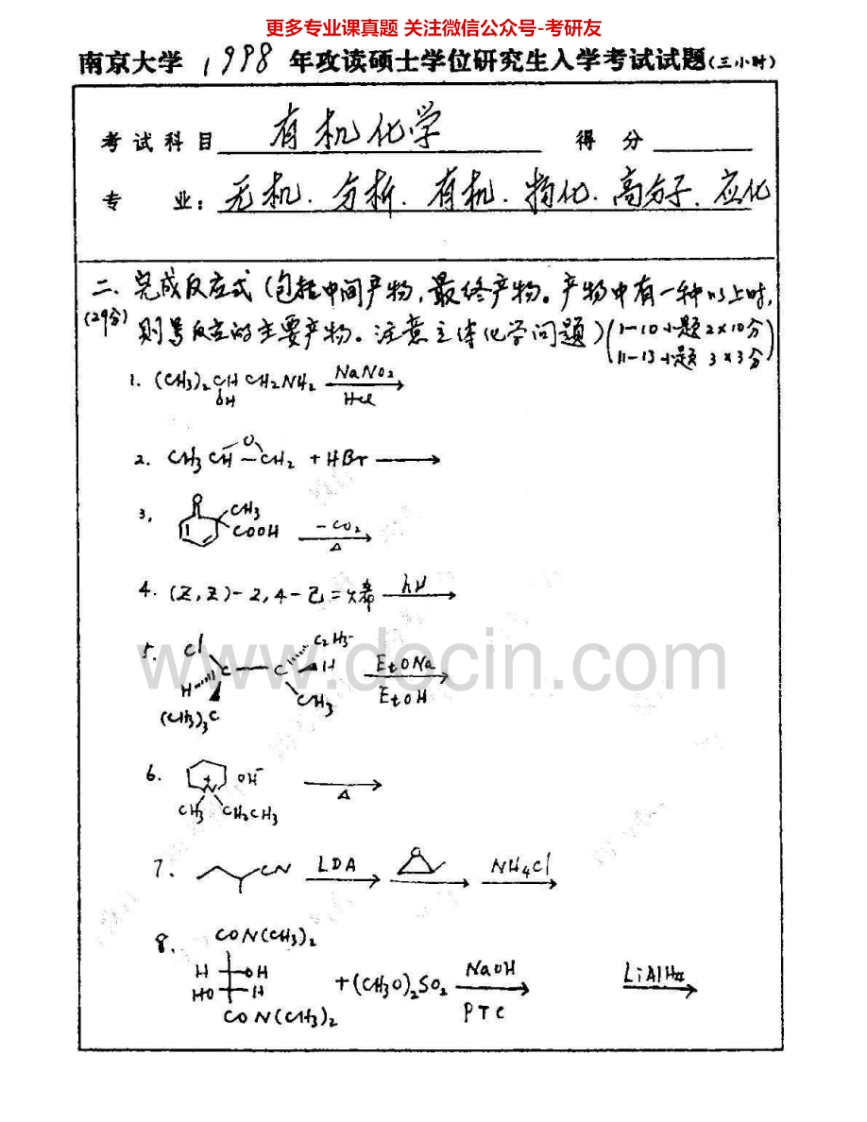 更多专业课真题 关注微信公众号-考研友
南京大学 1998 年攻读硕士学位研究生入学考试试题(三小时)
考试科目 有机化学 得分
专业: 无机. 分析. 有机. 物化. 高分子. 应化
二、完成反应式(包括中间产物,最终产物。产物中有一种以上时,
(29分) 则写反应的主要产物。注意立体化学问题)(1-10小题 2×10分
11-13小题 3×3分)
1. (CH3)2CHCH2NH2 NaNO2
OH HCl
2. CH3CH-CH2 + HBr
O
3. O CH3
COOH -CO2
Δ
4. (Z,Z)-2,4-己二烯 hν
5. Cl C2H5
C-C H EtONa
H CH3 EtOH
(CH3)3C
www.docin.com
6. N + OH-
CH3 CH2CH3 Δ
7. CN LDA O NH4Cl
8. CON(CH3)2
H OH
HO H + (CH3O)2SO2 NaOH LiAlH4
CON(CH3)2 PTC